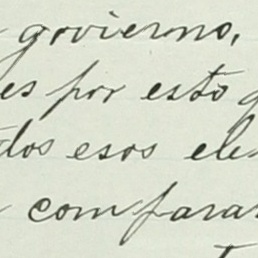 govierno,
es por esto
dos esos
comparar